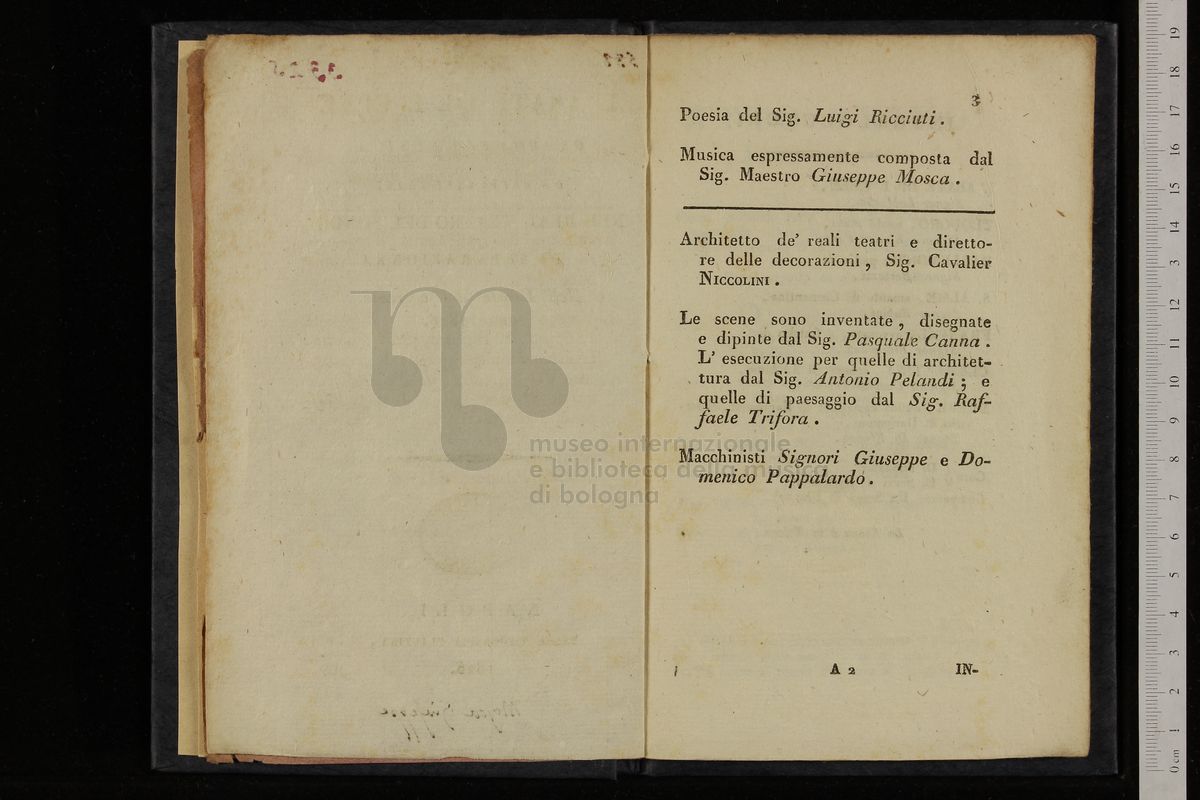 3
Poesia del Sig. Luigi Ricciuti.
Musica espressamente composta dal
Sig. Maestro Giuseppe Mosca.
Architetto de' reali teatri e diretto-
re delle decorazioni, Sig. Cavalier
NICCOLINI.
Le scene sono inventate, disegnate
e dipinte dal Sig. Pasquale Canna.
L' esecuzione per quelle di architet-
tura dal Sig. Antonio Pelandi; e
quelle di paesaggio dal Sig. Raf-
faele Trifora.
Macchinisti Signori Giuseppe e Do-
menico Pappalardo.
A 2 IN-
museo internazionale
e biblioteca della musica
di bologna
0 cm 1 2 3 4 5 6 7 8 9 10 11 12 13 14 15 16 17 18 19